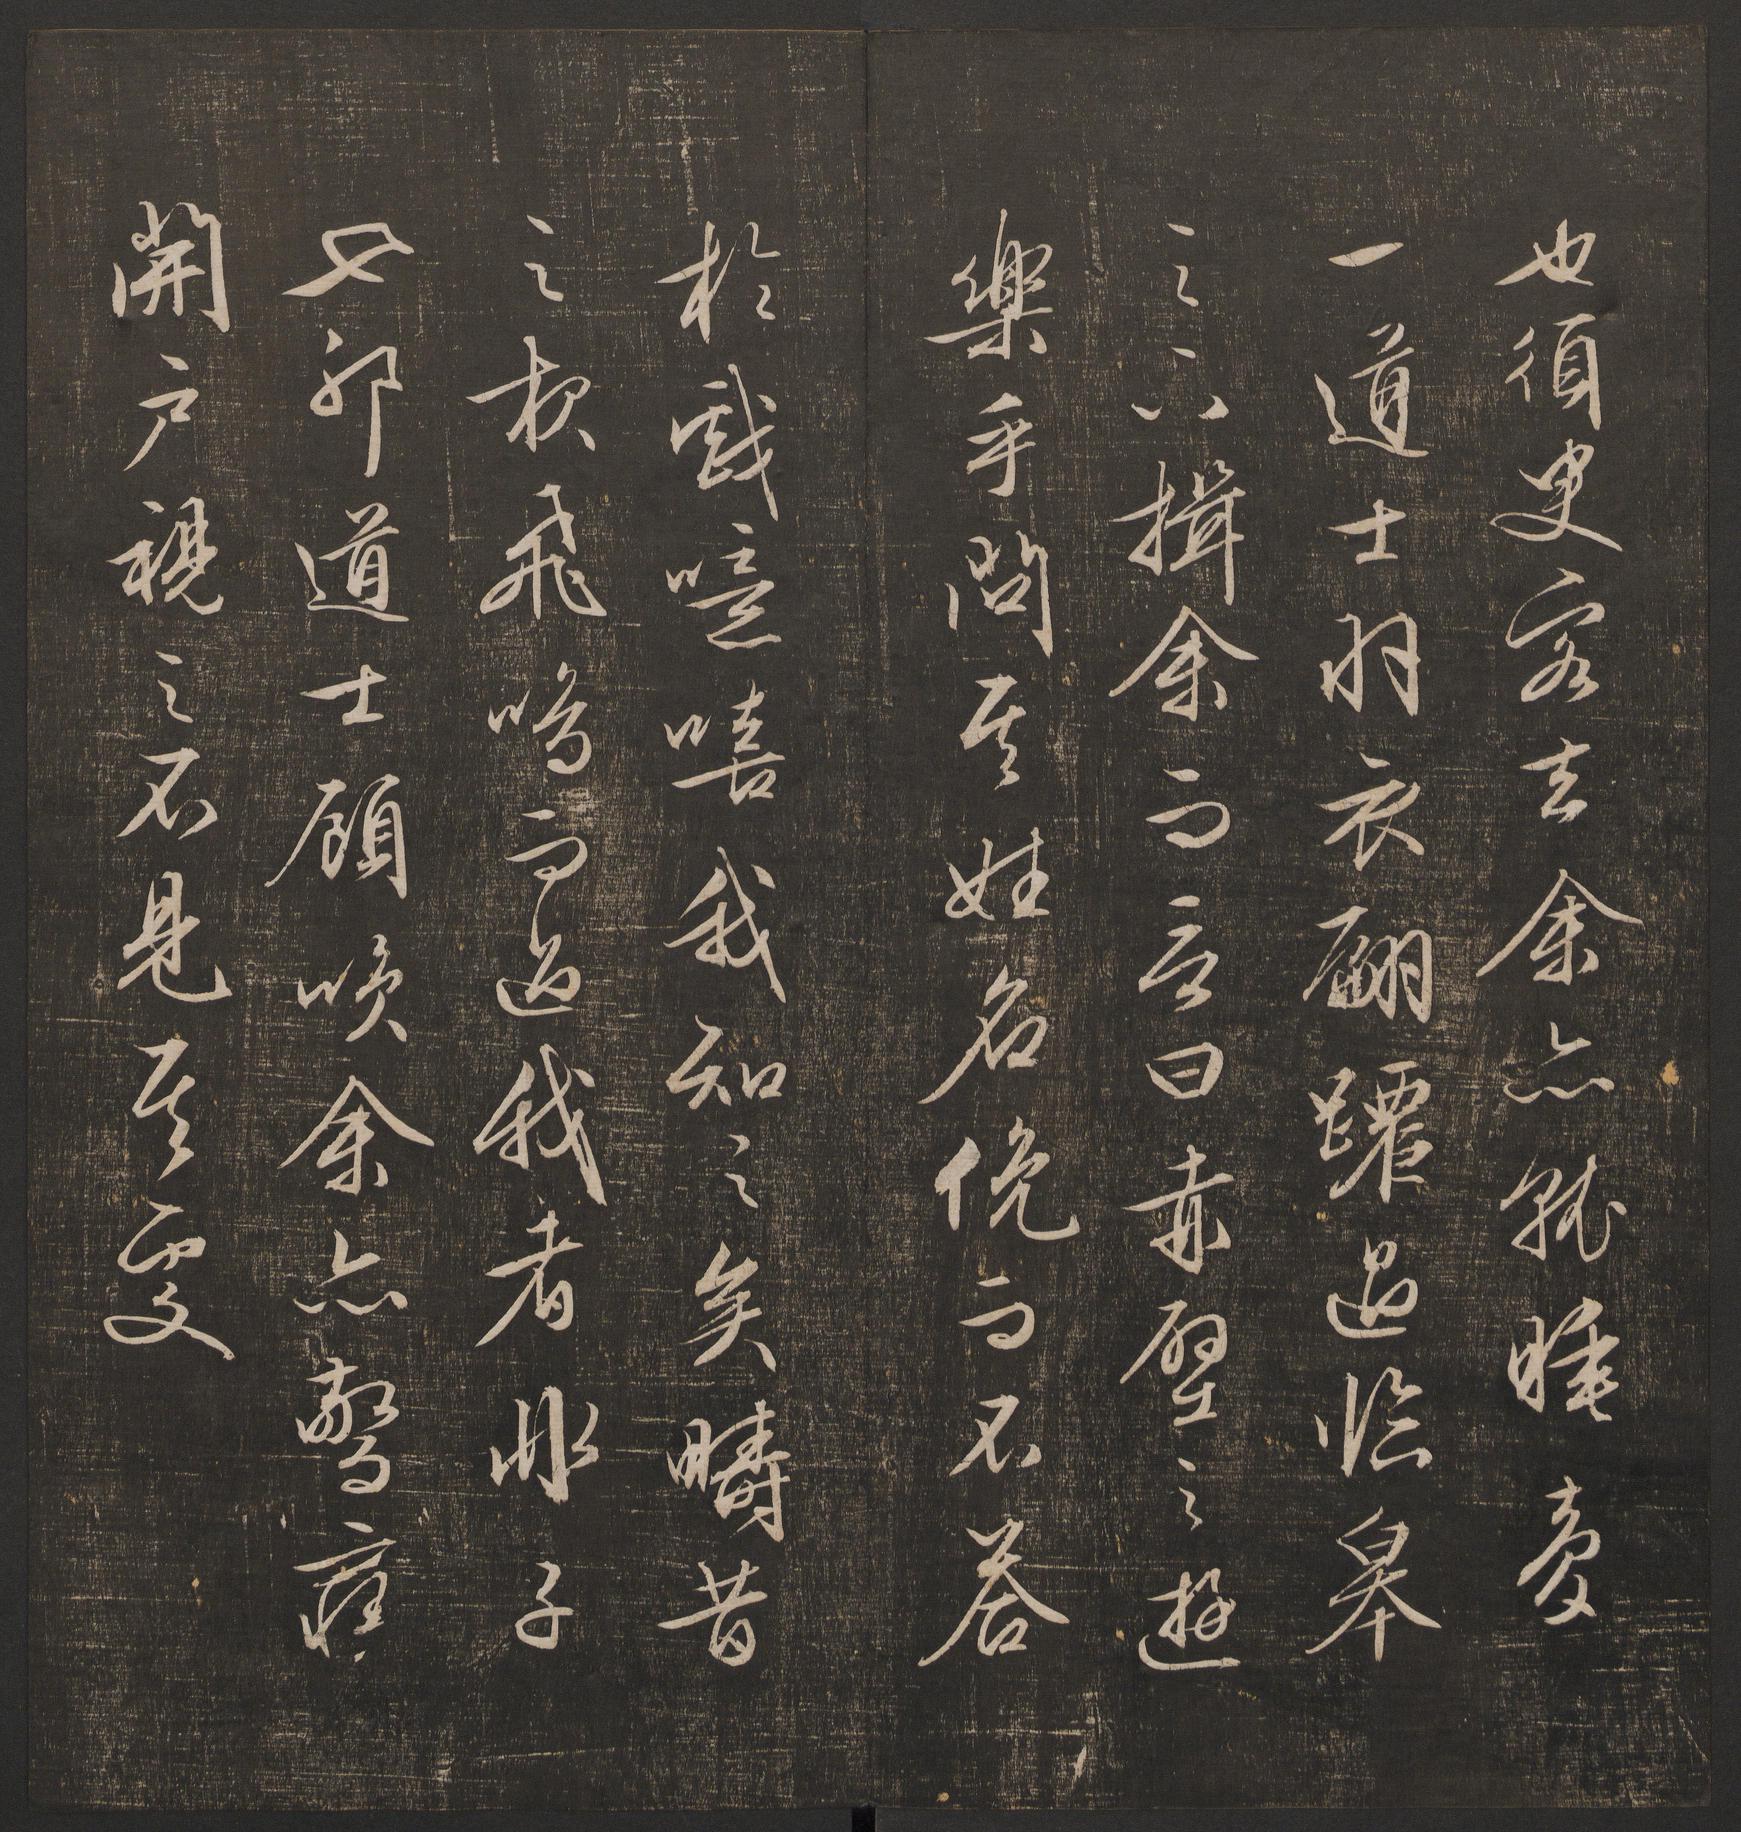 也須臾客去余亦就睡夢
一道士羽衣翩躚過臨皋
之下揖余而言曰赤壁之遊
樂乎問其姓名俛而不答
於戲噫嘻我知之矣疇昔
之夜飛鳴而過我者非子
也邪道士顧咲余亦驚寤
開户視之不見其處